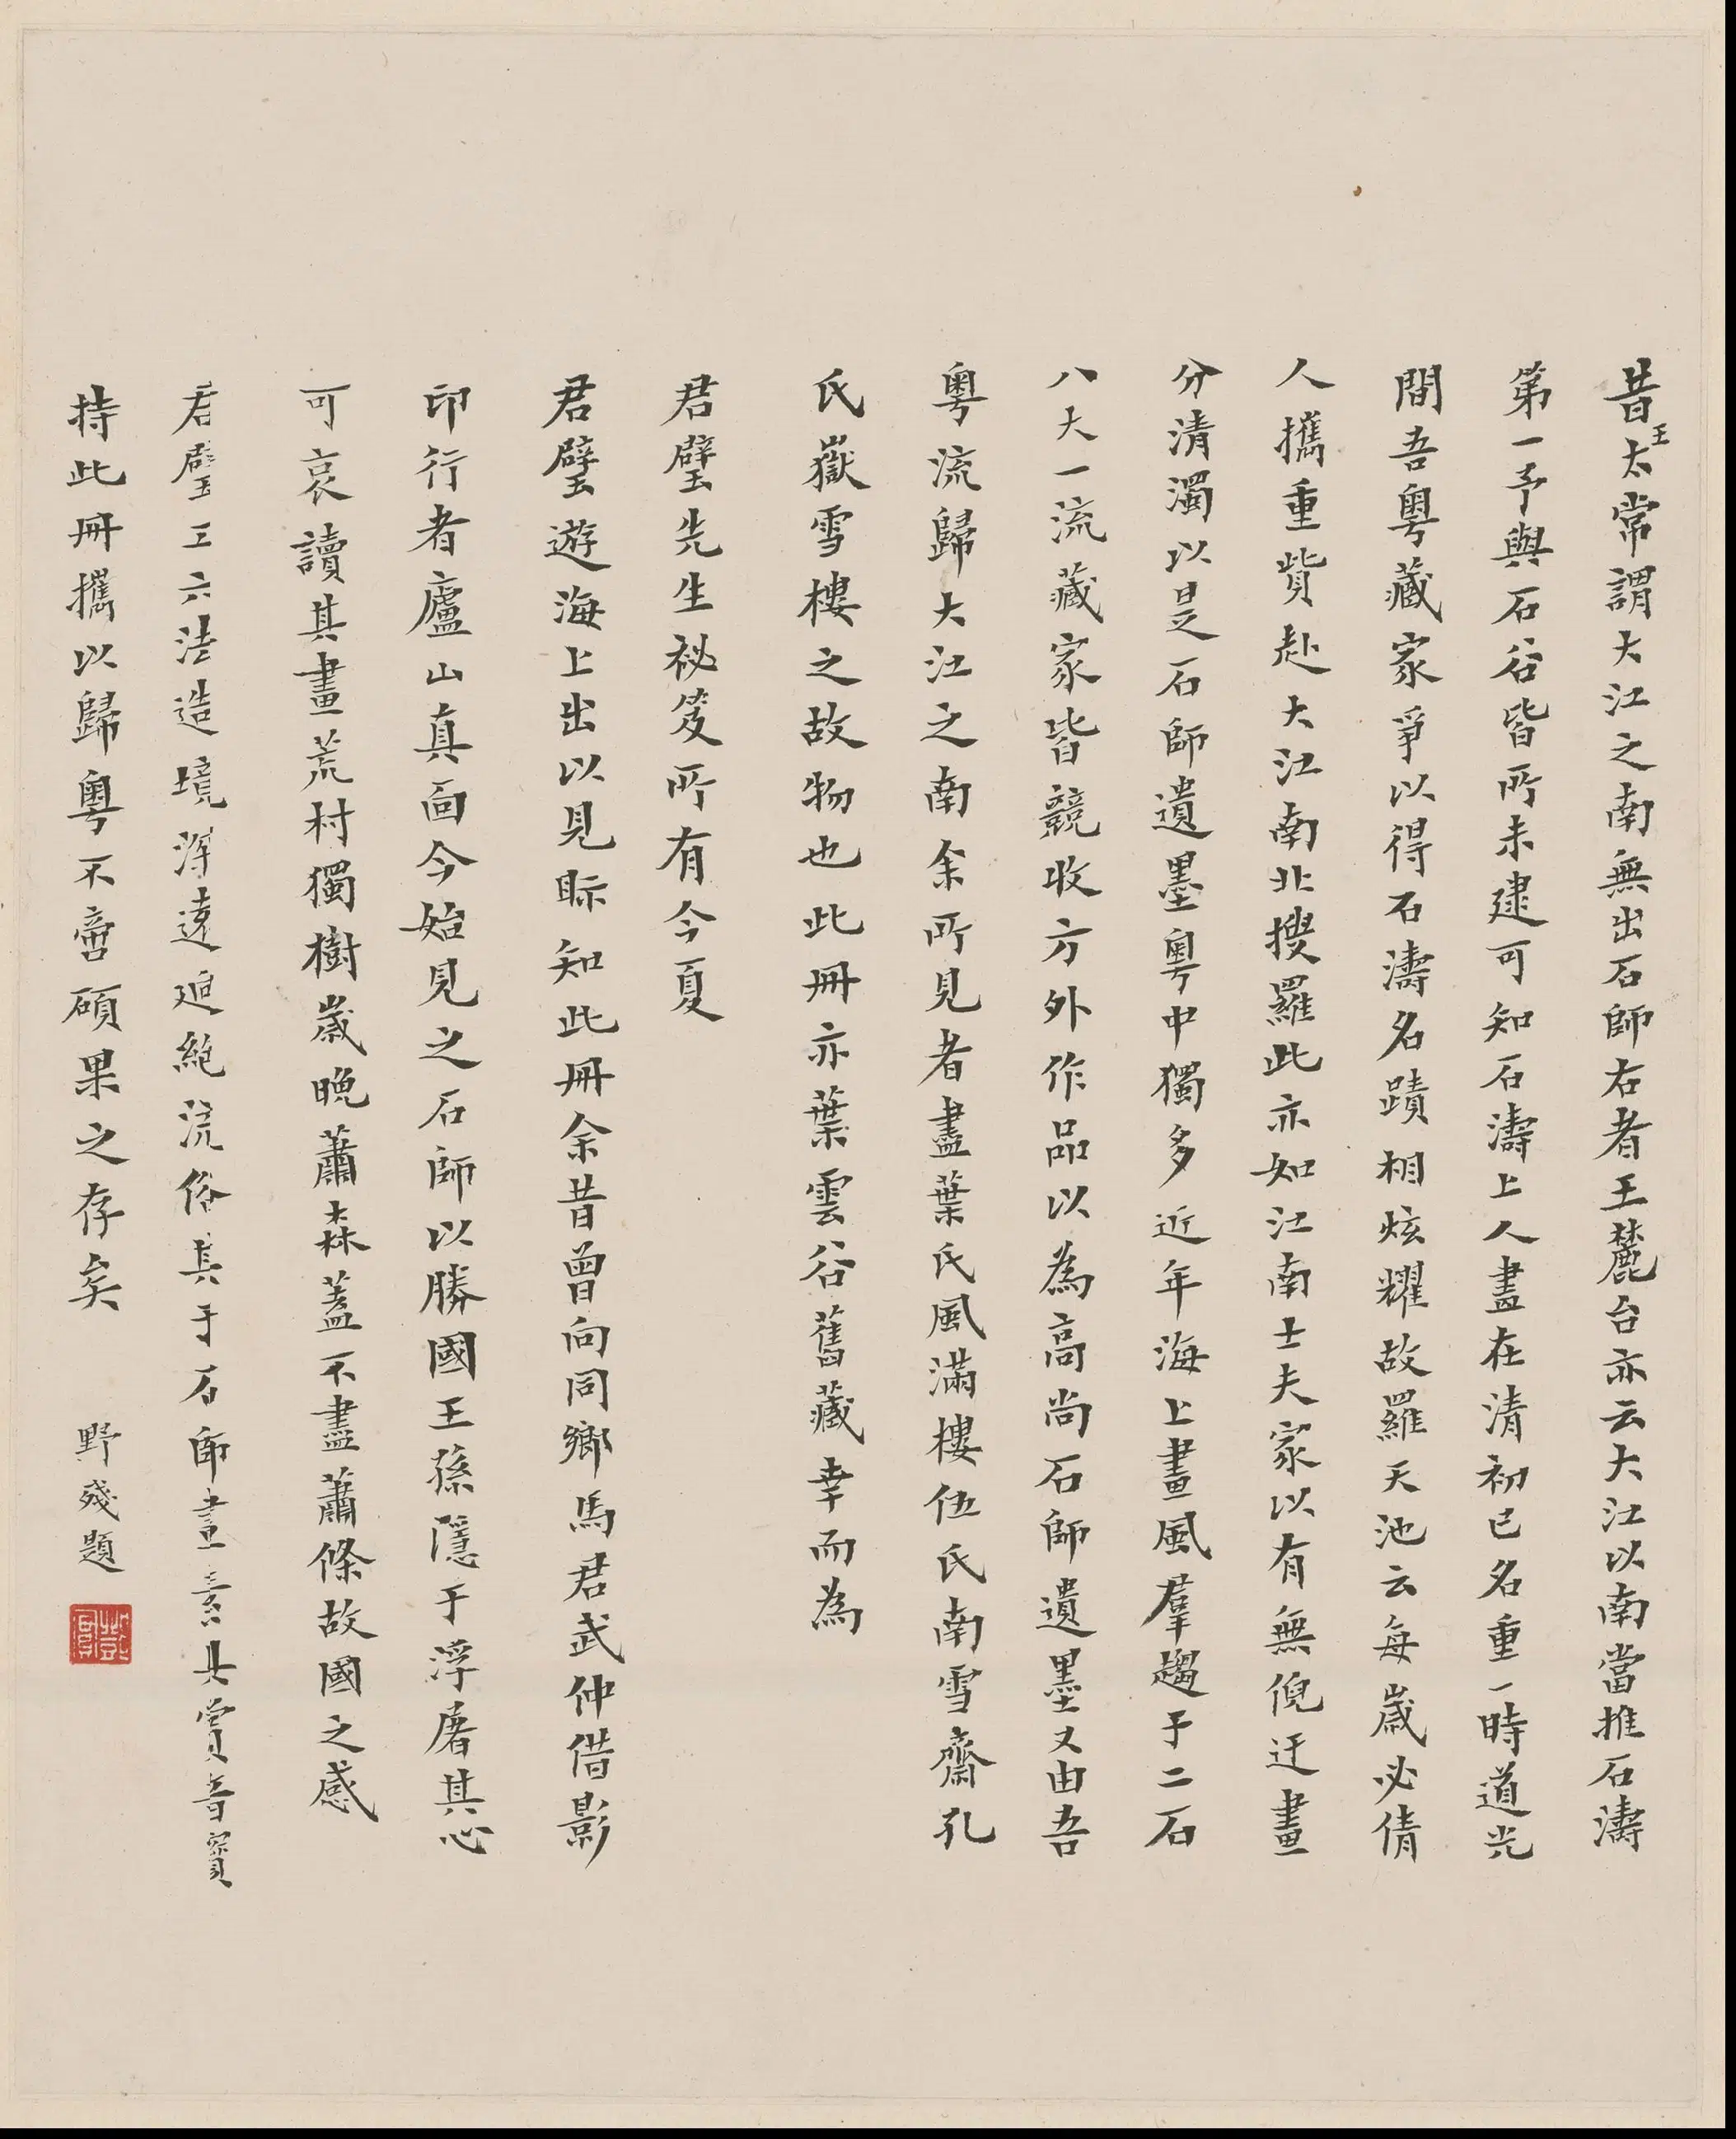 昔王太常謂大江之南無出石師右者王麓台亦云大江以南當推石濤
第一予與石谷皆所未逮可知石濤上人畫在清初已名重一時道光
間吾粵藏家爭以得石濤名蹟相炫耀故羅天池云每歲必倩
人攜重貲赴大江南北搜羅此亦如江南士夫家以有無倪迂畫
分清濁以是石師遺墨粵中獨多近年海上畫風羣趨于二石
八大一流藏家皆競收方外作品以為高尚石師遺墨又由吾
粵流歸大江之南余所見者盡葉氏風滿樓伍氏南雪齋孔
氏嶽雪樓之故物也此冊亦葉雲谷舊藏幸而為
君璧先生祕笈所有今夏
君璧遊海上出以見眎知此冊余昔曾向同鄉馬君武仲借影
印行者廬山真面今始見之石師以勝國王孫隱于浮屠其心
可哀讀其畫荒村獨樹歲晚蕭森蓋不盡蕭條故國之感
君璧工六法造境渾遠迥絕流俗其于石師畫素具賞音寶
持此冊攜以歸粵不啻碩果之存矣 野殘題